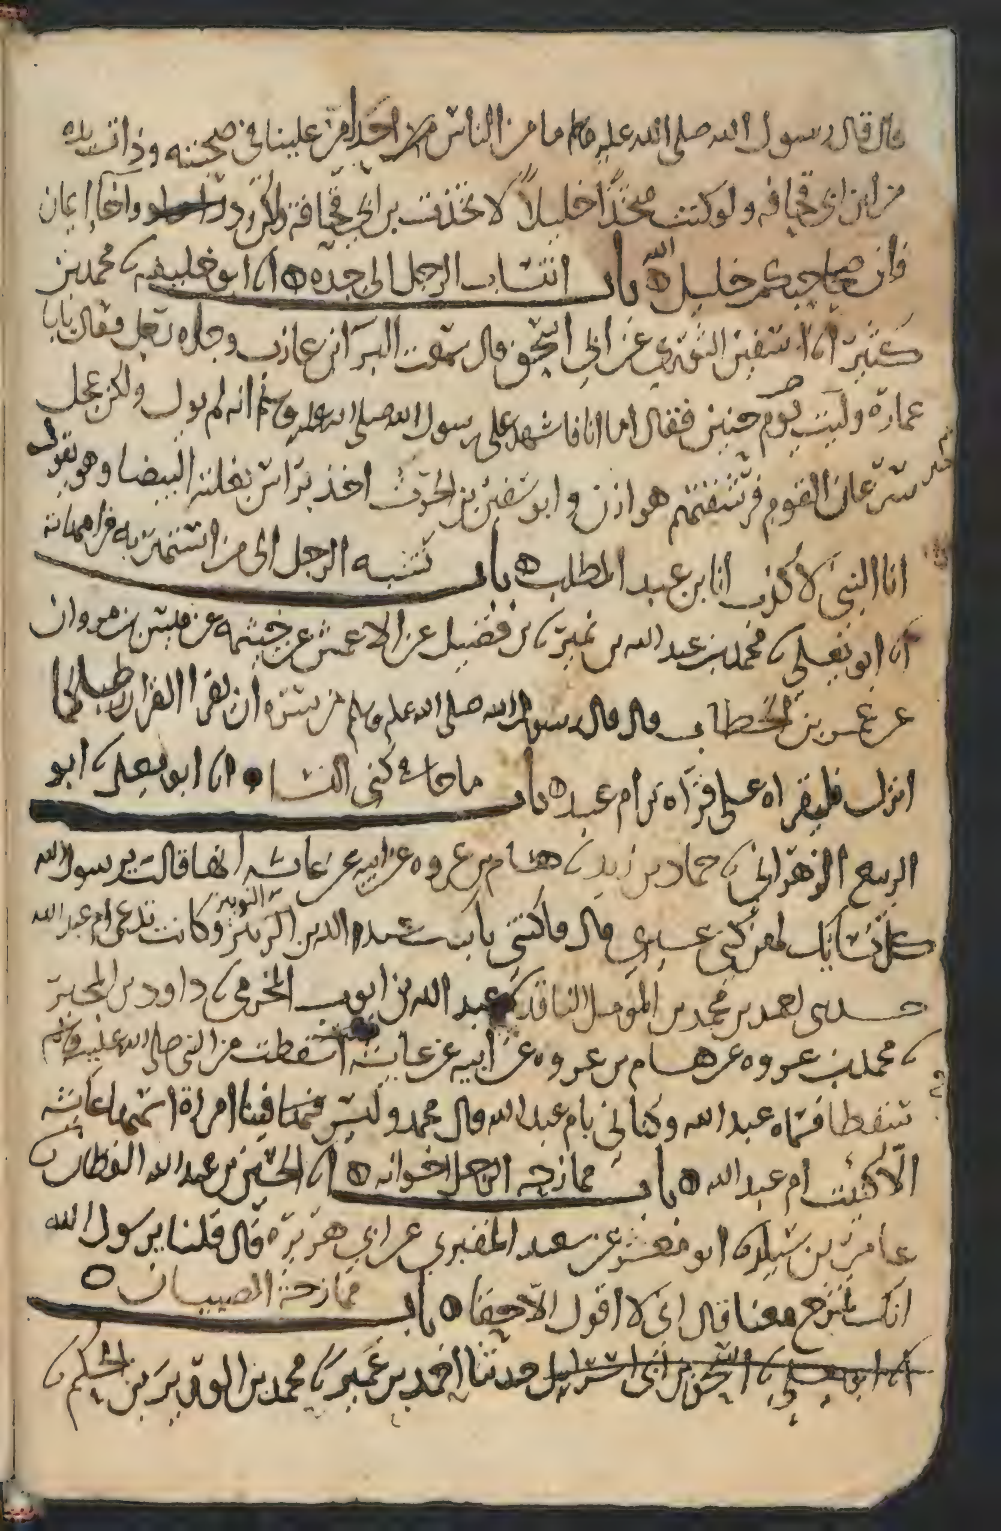 قال قال رسول الله صلى الله عليه وسلم ما من الناس أحد امن علينا في صحبته وذات يده
من ابن ابي قحافه ولو كنت متخذا خليلا لاتخذت بن ابي قحافة ولكن ود واخا ايمان
فان صاحبكم خليل الله باب انتساب الرجل الى جده انا ابو خليفه نا محمد بن
كثير انا سفين الثوري عن ابي اسحق قال سمعت البرآ ابن عازب وجاه رجل فقال يابا
عمارة وليت يوم حنين فقال اما انا فاشهد على رسول الله صلى الله عليه وسلم انه لم يول ولكن عجل
سرعان القوم فرشقتهم هوازن وابو سفين بن الحرث اخذ براس بغلته البيضا وهو يقول
انا النبي لا كذب انا بن عبد المطلب باب الرجل الى من
انا ابو يعلى نا محمد بن عبد الله بن نمير نا بن فضيل عن الاعمش عن خيثمه عن قيس بن مروان
عن عمر بن الخطاب قال قال رسول الله صلى الله عليه وسلم من سره ان يقرا القران كما
انزل فليقراه على قراه بن ام عبد باب ما جا في كنى النسا انا ابو يعلى نا ابو
الربيع الزهراني نا حماد بن زيد نا هشام بن عروه عن ابيه عن عائشه انها قالت يرسول الله
كل نسائك لهن كنى غيري قال فاكتني بابنك عبد الله بن الزبير وكانت تدعى ام عبد الله
حدثني احمد بن محمد بن المومل الناقد نا عبد الله بن ايوب المخرمي نا داود بن المحبر
نا محمد بن عروه عن هشام بن عروه عن ابيه عن عائشه اسقطت من النبي صلى الله عليه وسلم
سقطا فسماه عبد الله وكناني بام عبد الله قال محمد وليس فينا امراة اسمها عائشه
الا كنيت ام عبد الله باب ممازحة الرجل اخوانه انا الحسين بن عبد الله القطان نا
عامر بن سيار نا ابو معشر عن سعيد المقبري عن ابي هريرة قال قلنا يرسول الله
انك تمزح معنا قال اني لا اقول الا حقا باب ممازحة الصبيان
انا ابو يعلى نا اسحق بن ابي اسرائيل حدثنا احمد بن عمير نا محمد بن الوزير بن الحكم نا